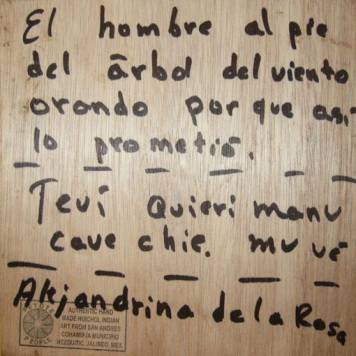 El hombre al pie
del ārbol del viento
orando porque asi
lo prometió.
Teví Quieri manu
cave chie. mu vē
Alejandrina de la Rosa
AUTHENTIC HAND
MADE HUICHOL INDIAN
ART FROM SAN ANDRES
COHAMIATA MUNICIPIO
MEZQUITIC, JALISCO, MEX.